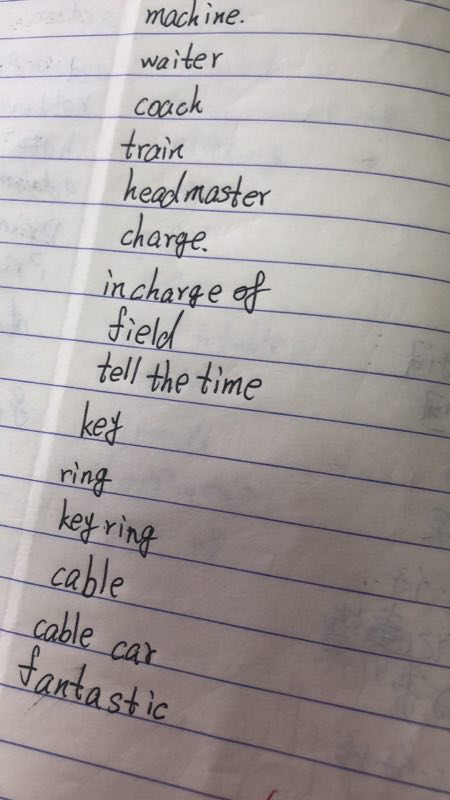 machine.
waiter
coach
train
headmaster
charge.
in charge of
field
tell the time
key
ring
key ring
cable
cable car
fantastic